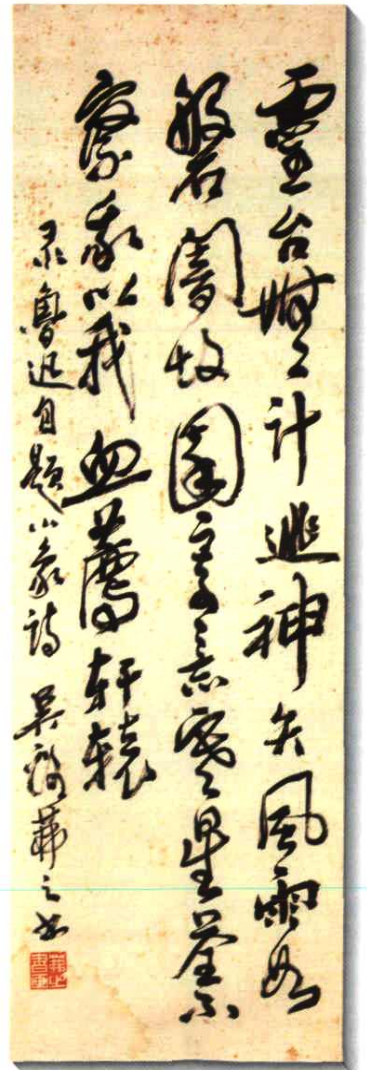 靈台無計逃神矢風雨如
磐闇故園寄意寒星荃不
察我以我血薦軒轅
录魯迅自題小象詩 吳谿茀之书